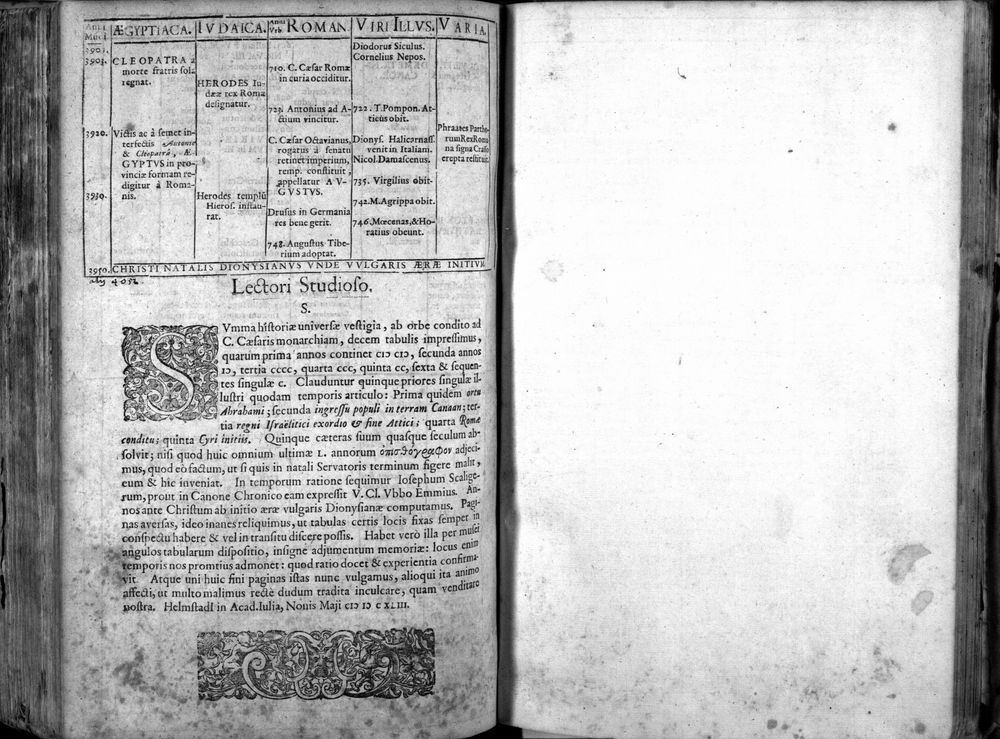 Anni Mūdi
ÆGYPTIACA.
IVDAICA.
Anni Vrb. ROMAN.
VIRI ILLVS.
VARIA.
3901.
3903.
CLEOPATRA à
morte fratris sola
regnat.
3920. Victis ac à semet in-
terfectis Antonio
& Cleopatrâ, Æ-
GYPTVS in pro-
vinciæ formam re-
digitur à Roma-
nis.
3930.
HERODES Iu-
dææ rex Romæ
designatur.
Herodes templū
Hieros. instau-
rat.
710. C. Cæsar Romæ
in curia occiditur.
723. Antonius ad A-
ctium vincitur.
C. Cæsar Octavianus,
rogatus à senatu
retinet imperium,
remp. constituit,
appellatur AV-
GVSTVS.
Drusus in Germania
res bene gerit.
748. Augustus Tibe-
rium adoptat.
Diodorus Siculus.
Cornelius Nepos.
722. T. Pompon. At-
ticus obit.
Dionys. Halicarnass.
venit in Italiam.
Nicol. Damascenus.
735. Virgilius obit.
742. M. Agrippa obit.
746. Mœcenas, & Ho-
ratius obeunt.
Phraates Partho-
rum Rex Roma-
na signa Crasso
erepta restituit.
3950. CHRISTI NATALIS DIONYSIANVS VNDE VVLGARIS ÆRÆ INITIVM
4052.
Lectori Studioso.
S.
SVmma historiæ universæ vestigia, ab orbe condito ad
C. Cæsaris monarchiam, decem tabulis impressimus,
quarum prima annos continet cIↄ cIↄ, secunda annos
Iↄ, tertia cccc, quarta ccc, quinta cc, sexta & sequen-
tes singulæ c. Clauduntur quinque priores singulæ il-
lustri quodam temporis articulo: Prima quidem ortu
Abrahami; secunda ingressu populi in terram Canaan; ter-
tia regni Israëlitici exordio & fine Attici; quarta Romæ
conditu; quinta Cyri initiis. Quinque cæteras suum quasque seculum ab-
solvit; nisi quod huic omnium ultimæ L. annorum ὀπισθόγραφον adjeci-
mus, quod eò factum, ut si quis in natali Servatoris terminum figere malit,
eum & hic inveniat. In temporum ratione sequimur Iosephum Scalige-
rum, prout in Canone Chronico eam expressit V. Cl. Vbbo Emmius. An-
nos ante Christum ab initio æræ vulgaris Dionysianæ computamus. Pagi-
nas aversas, ideo inanes reliquimus, ut tabulas certis locis fixas semper in
conspectu habere & vel in transitu discere possis. Habet verò illa per musei
angulos tabularum dispositio, insigne adjumentum memoriæ: locus enim
temporis nos promtius admonet: quod ratio docet & experientia confirma-
vit. Atque uni huic fini paginas istas nunc vulgamus, alioqui ita animo
affecti, ut multo malimus rectè dudum tradita inculcare, quam venditare
nostra. Helmstadî in Acad. Iulia, Nonis Maji cIↄ Iↄ c XLIII.